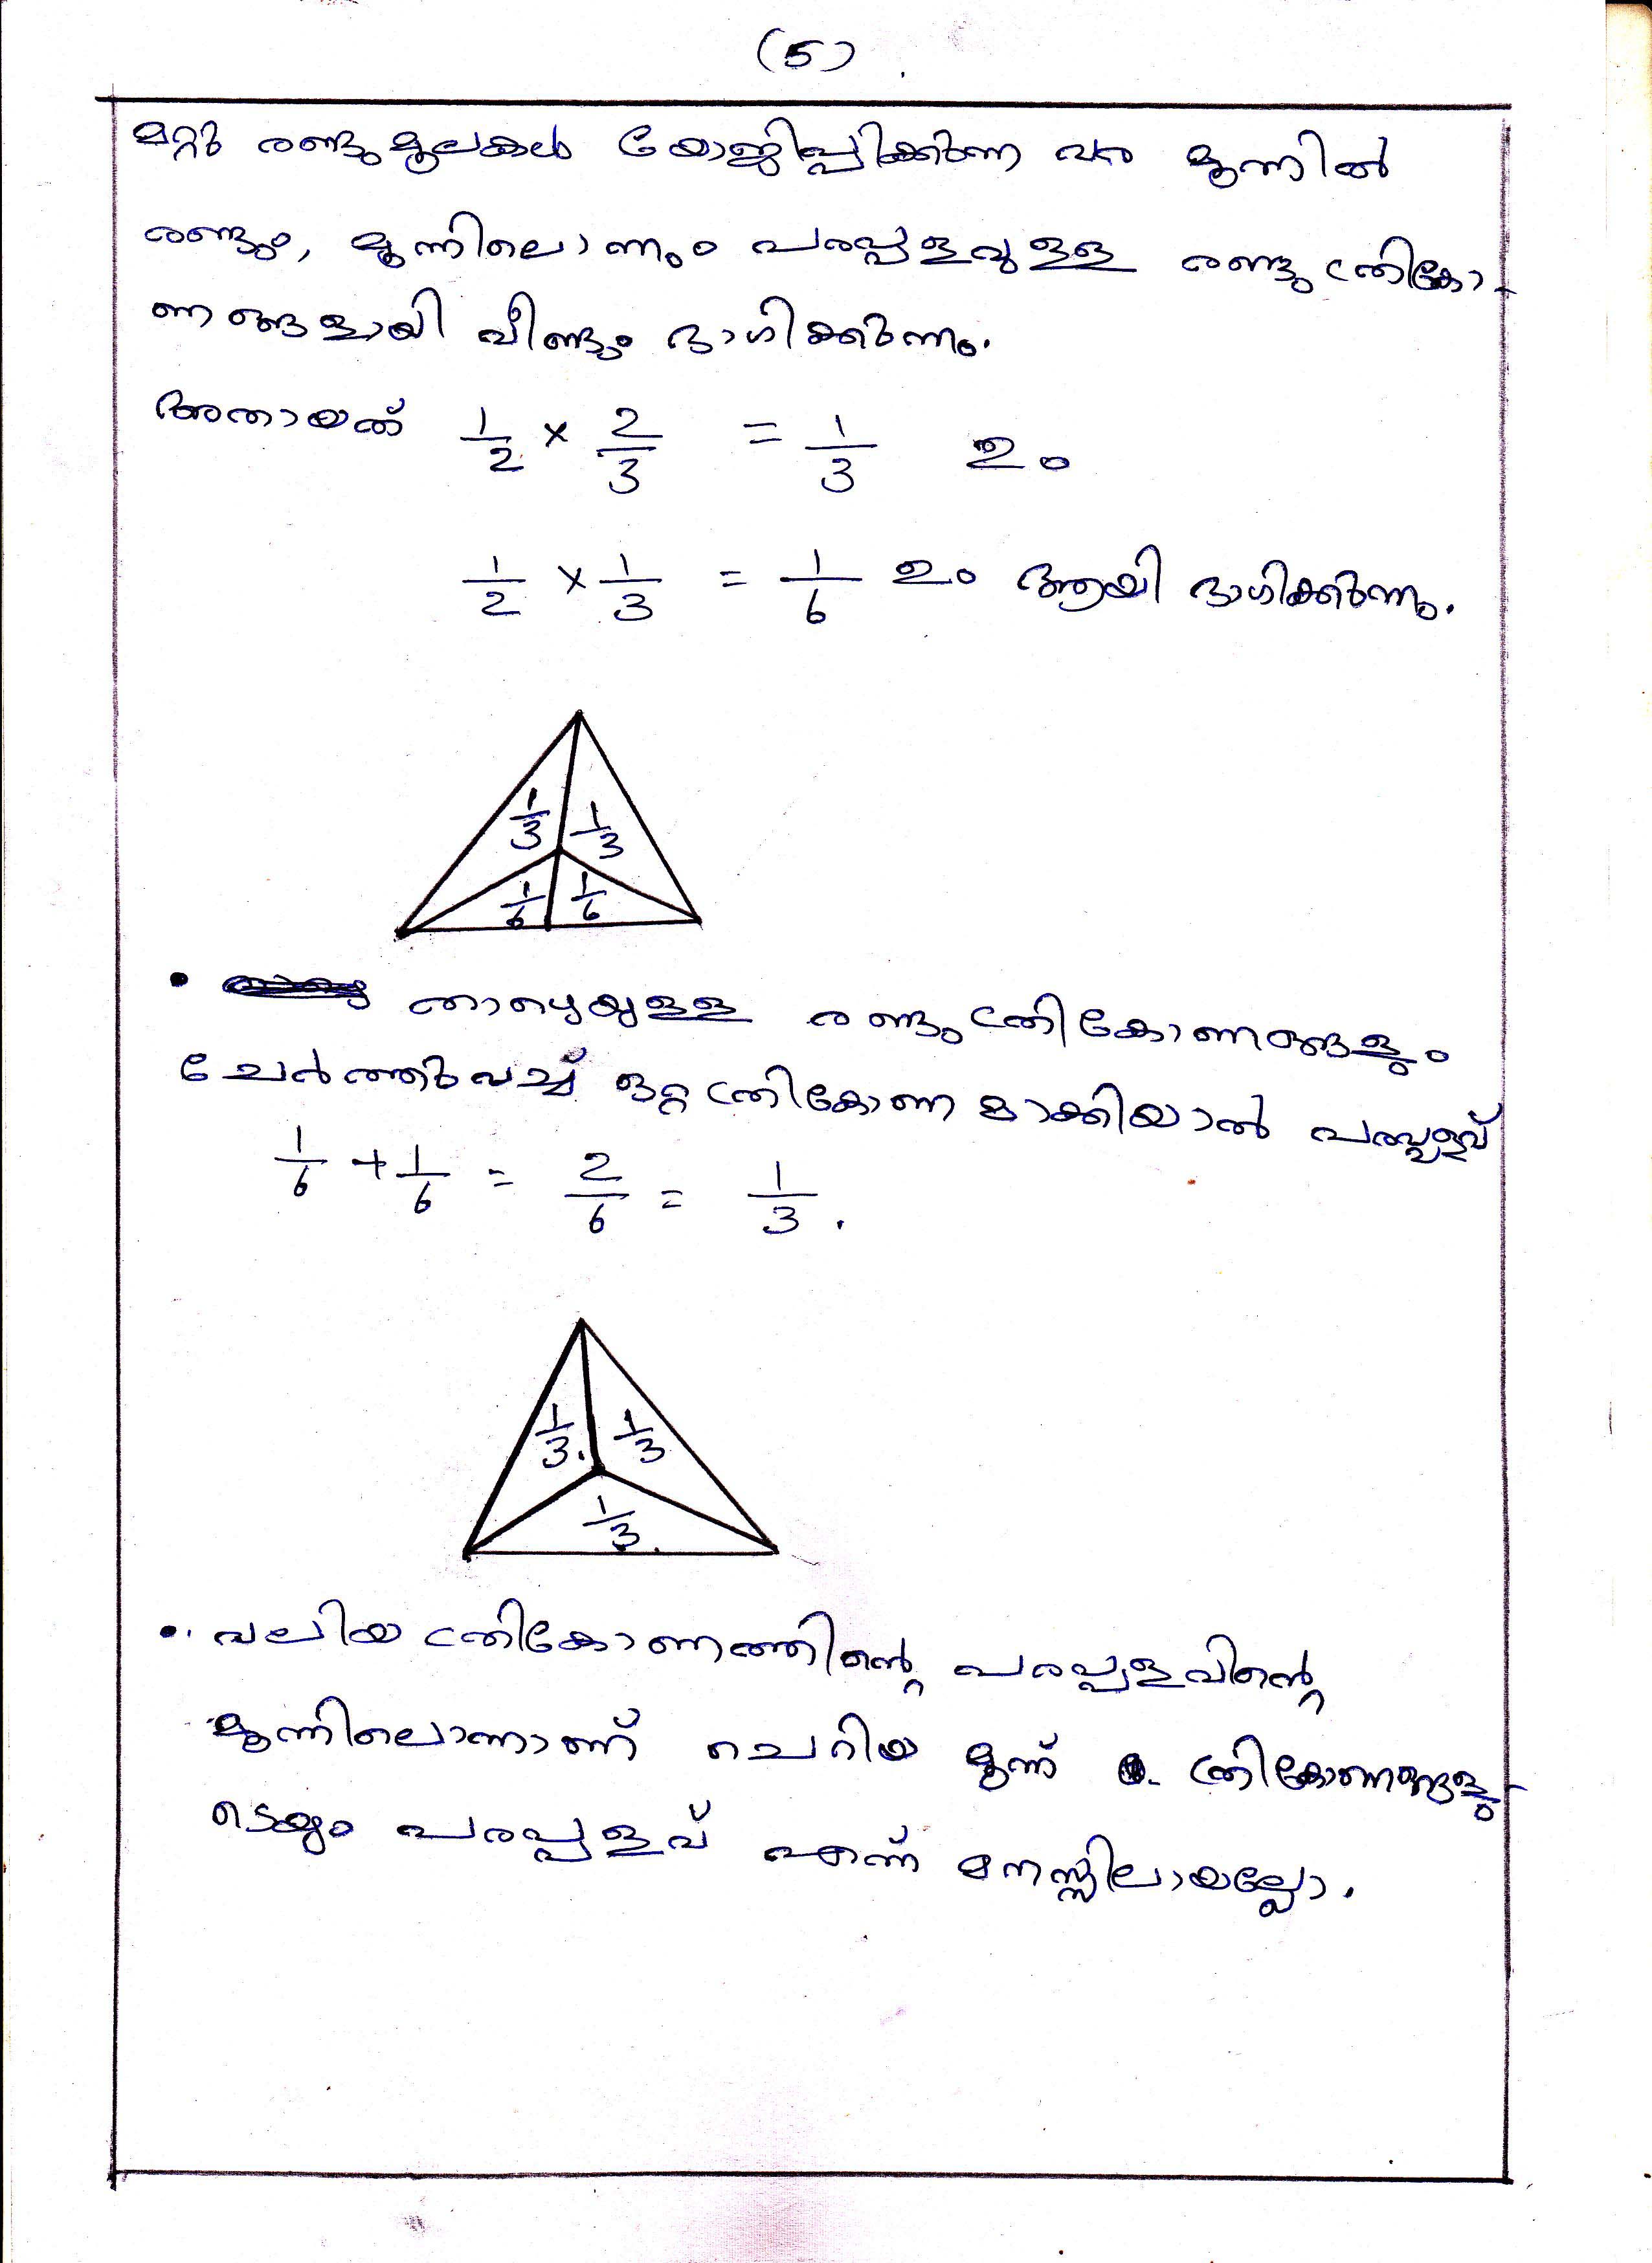 (5)
മറ്റു രണ്ടുമൂലകൾ യോജിപ്പിക്കുന്ന വര മൂന്നിൽ
രണ്ടും, മൂന്നിലൊന്നും പരപ്പളവുള്ള രണ്ടു ത്രികോ-
ണങ്ങളായി വീണ്ടും ഭാഗിക്കുന്നു.
അതായത് 1/2 × 2/3 = 1/3 ഉം
1/2 × 1/3 = 1/6 ഉം ആയി ഭാഗിക്കുന്നു.
1/3 1/3
1/6 1/6
• താഴെയുള്ള രണ്ടു ത്രികോണങ്ങളും
ചേർത്തുവച്ച് ഒറ്റ ത്രികോണമാക്കിയാൽ പരപ്പളവ്
1/6 + 1/6 = 2/6 = 1/3.
1/3. 1/3
1/3.
• വലിയ ത്രികോണത്തിന്റെ പരപ്പളവിന്റെ
മൂന്നിലൊന്നാണ് ചെറിയ മൂന്ന് ത്രികോണങ്ങളു-
ടെയും പരപ്പളവ് എന്ന് മനസ്സിലായല്ലോ.